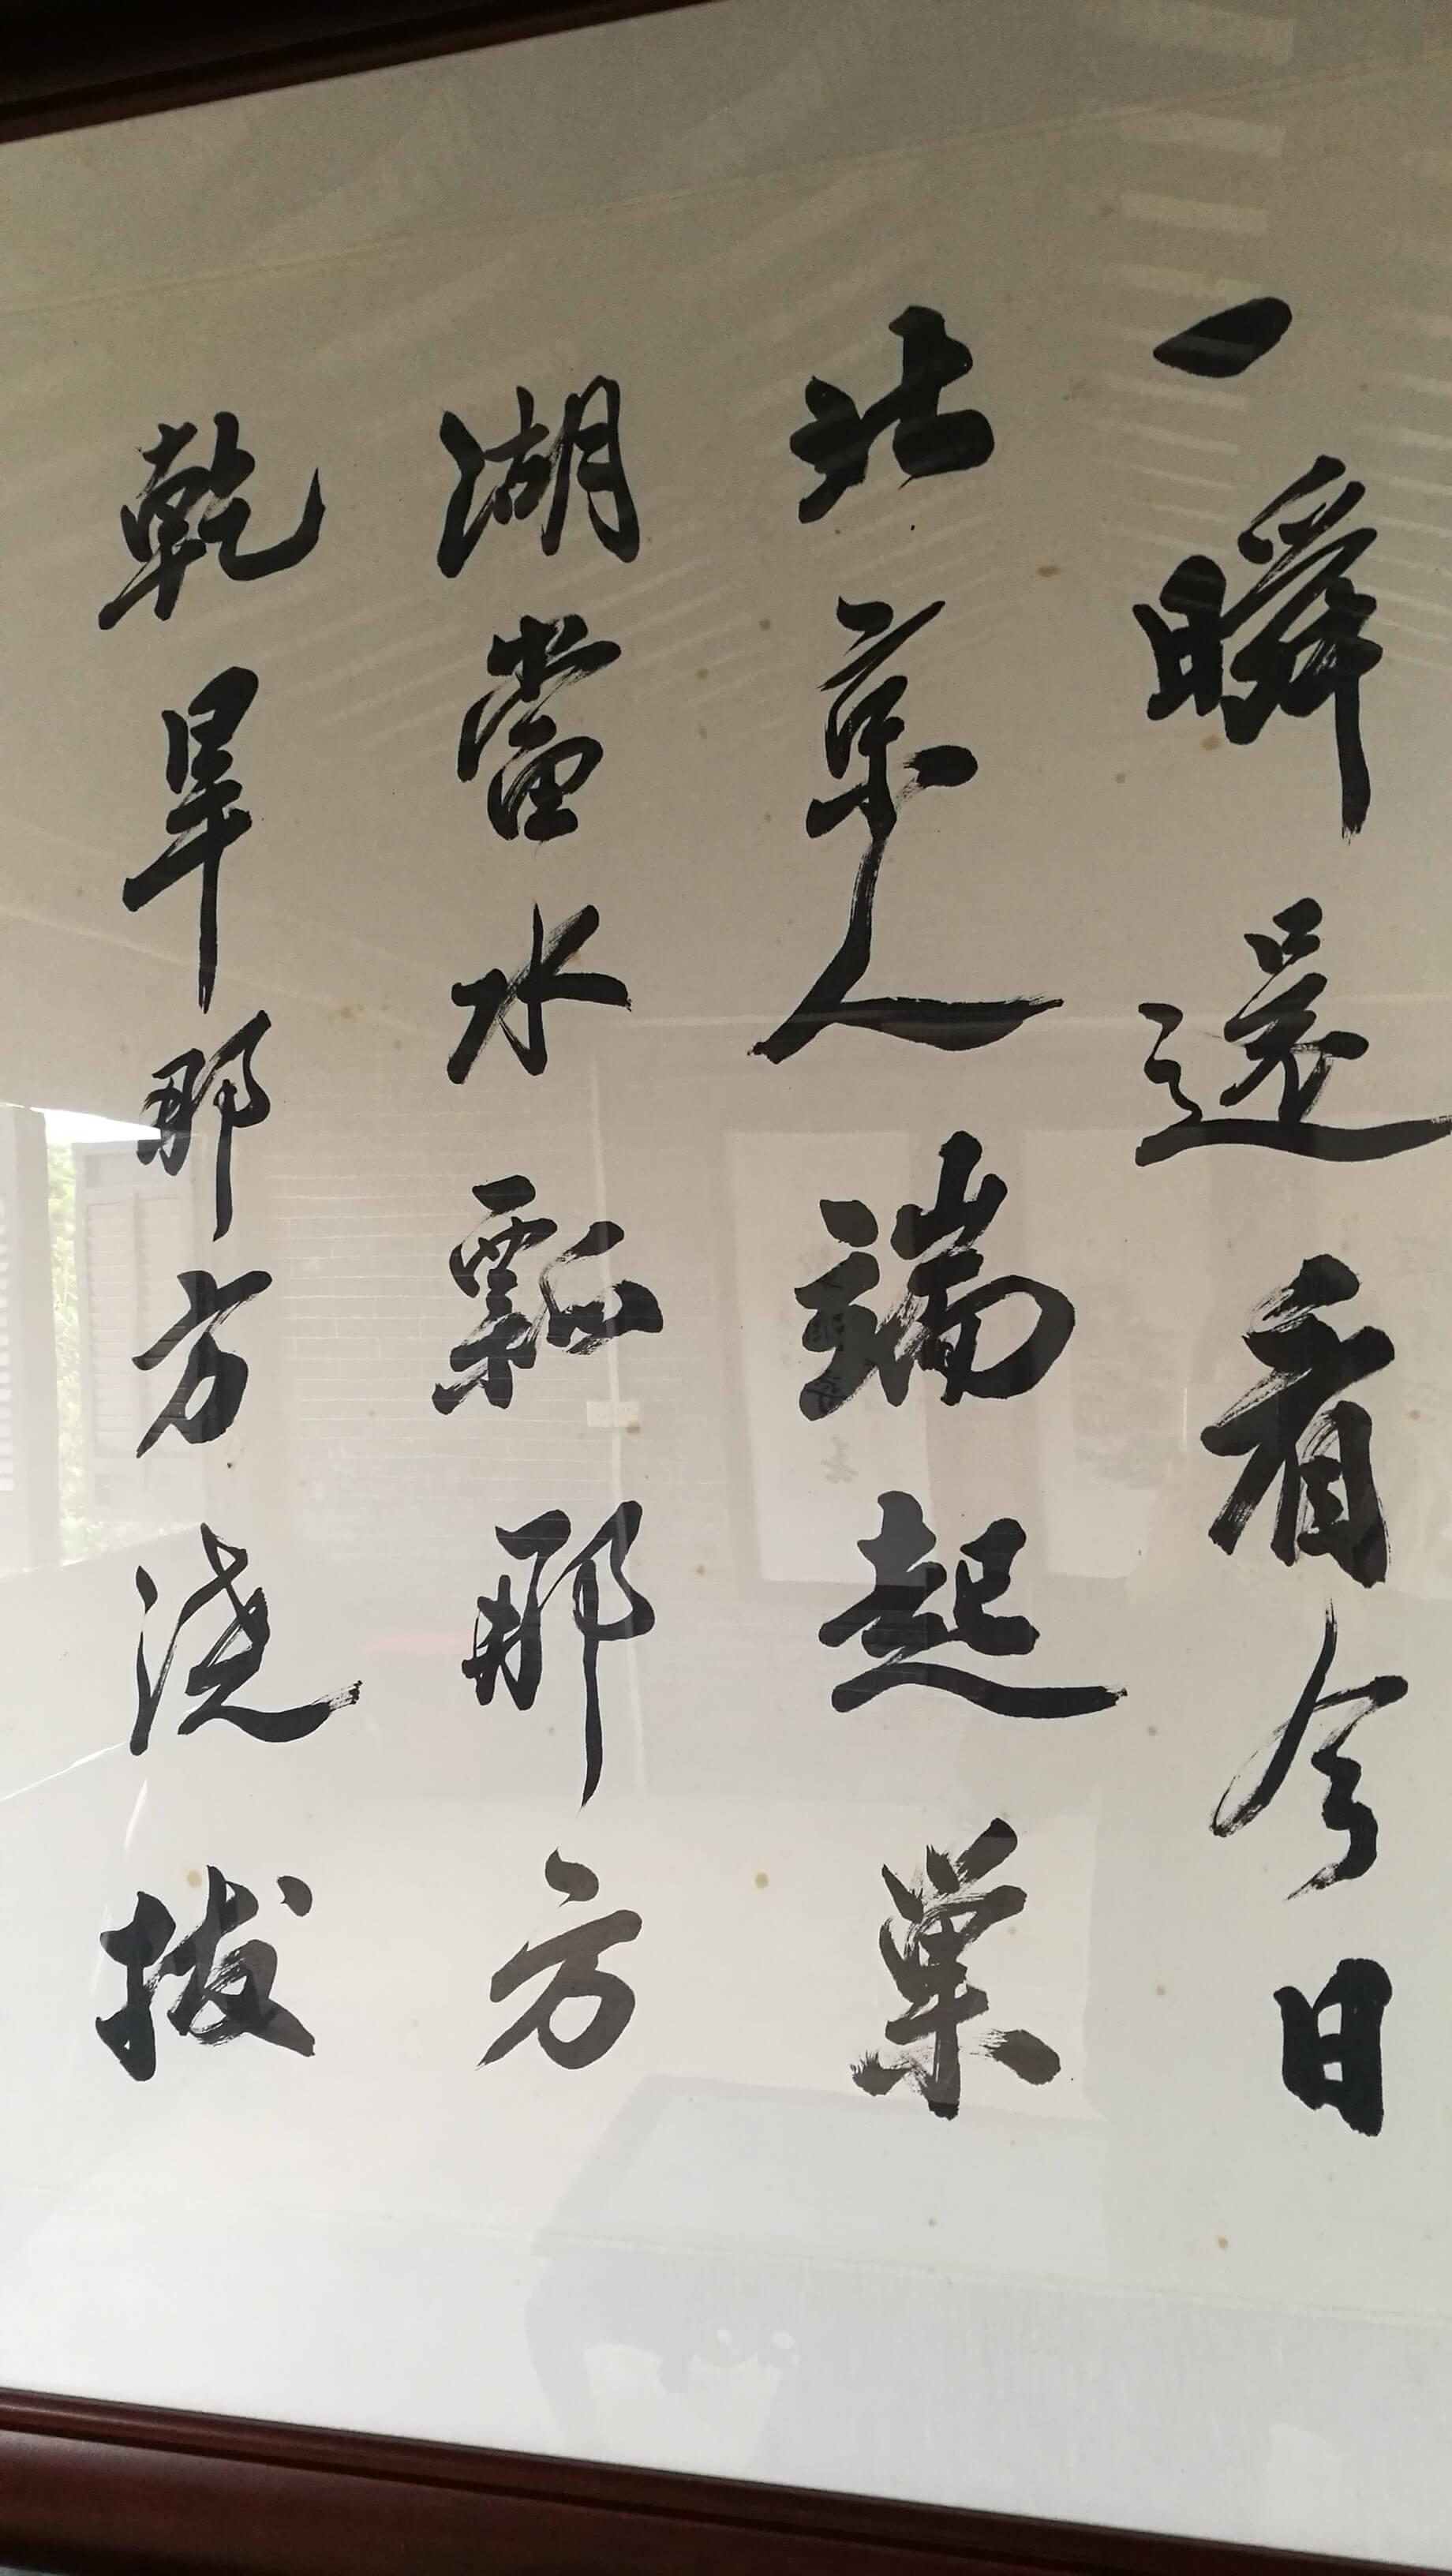 一瞬還看今日
北京人端起巢
湖當水瓢那方
乾旱那方澆拔